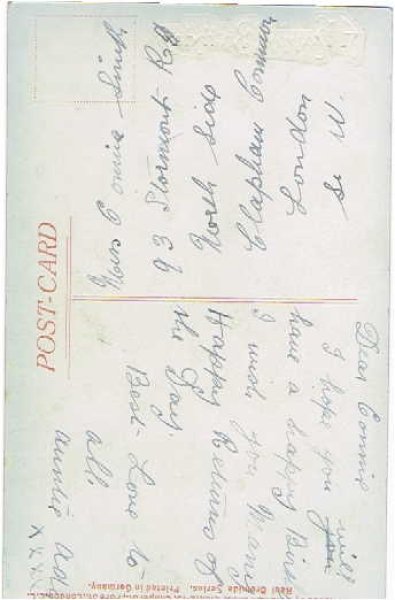 POST-CARD
Dear Connie
I hope you will
have a happy Birth
I wish you Many
Happy Returns of
the Day.
Best Love to
all.
Auntie
x x x x
Miss Connie
93 Stormont Rd
North Side
Clapham Common
London
S. W.
Real Bromide Series. Printed in Germany.